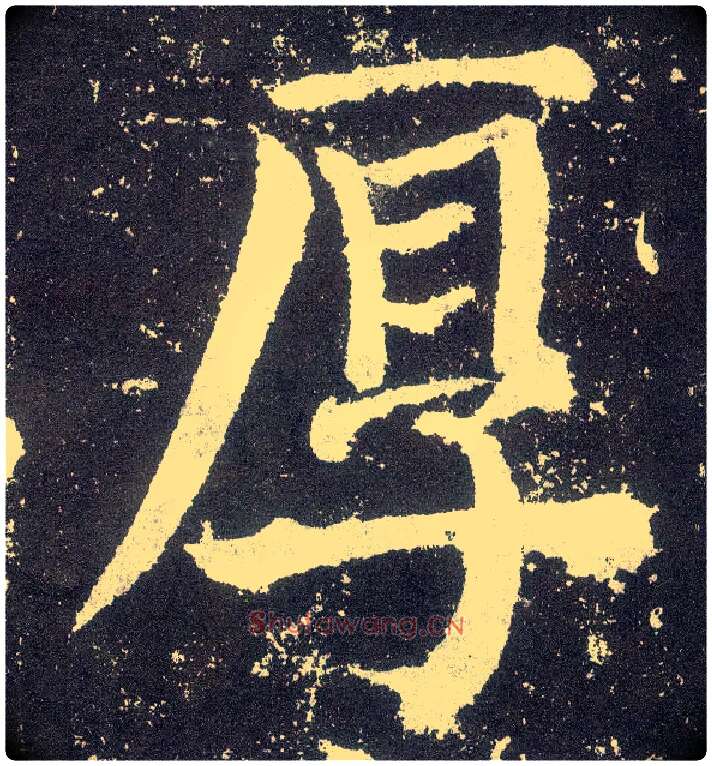 厚
Shufawang.CN